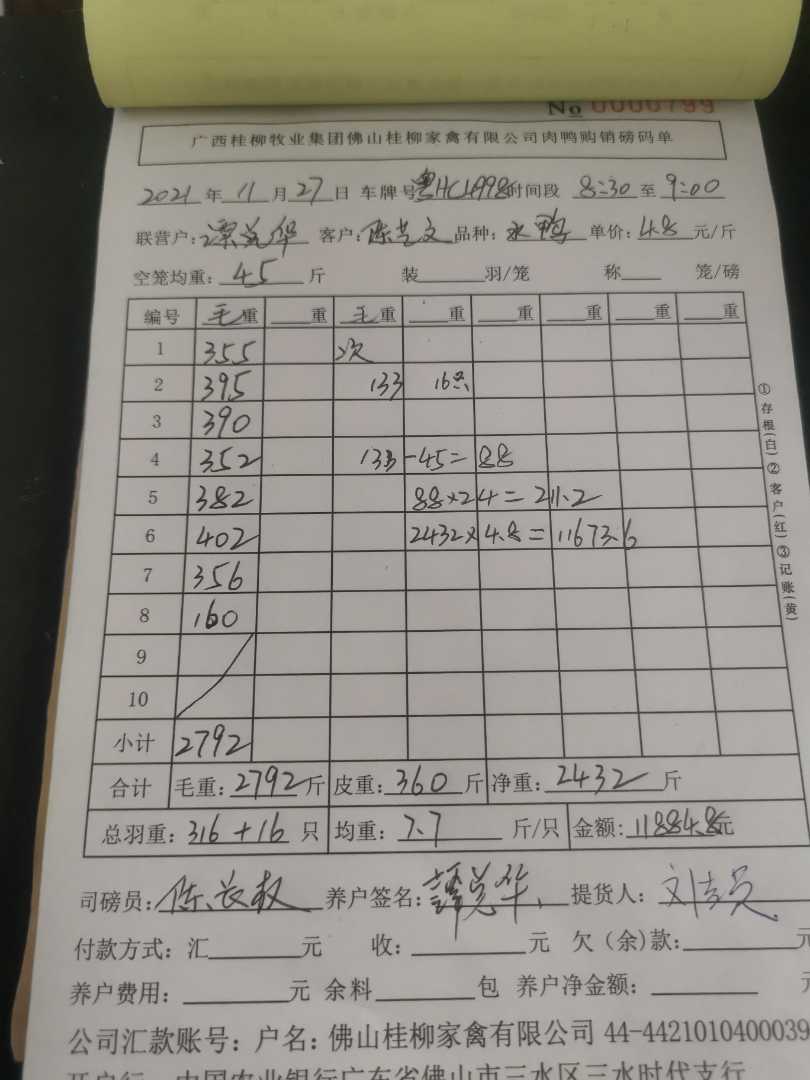 No 0000799
广西桂柳牧业集团佛山桂柳家禽有限公司肉鸭购销磅码单
2021 年 11 月 27 日 车牌号 粤HC1998 时间段 8:30 至 9:00
联营户: 华 客户: 陈艺文 品种: 水鸭 单价: 4.8 元/斤
空笼均重: 45 斤 装 羽/笼 称 笼/磅
编号 毛重 重 毛重 重 重 重 重 重
1 355 次
2 395 133 16只
3 390
4 352 133-45=88
5 382 88×2.4=211.2
6 402 2432×4.8=11673.6
7 356
8 160
9
10
小计 2792
合计 毛重: 2792 斤 皮重: 360 斤 净重: 2432 斤
总羽重: 316+16 只 均重: 7.7 斤/只 金额: 11884.8 元
司磅员: 陈 养户签名: 谭 华 提货人: 刘
付款方式: 汇 元 收: 元 欠(余)款: 元
养户费用: 元 余料 包 养户净金额: 元
公司汇款账号: 户名: 佛山桂柳家禽有限公司 44-4421010400039
开户行 中国农业银行广东省佛山市三水区三水时代支行
①存根(白)②客户(红)③记账(黄)